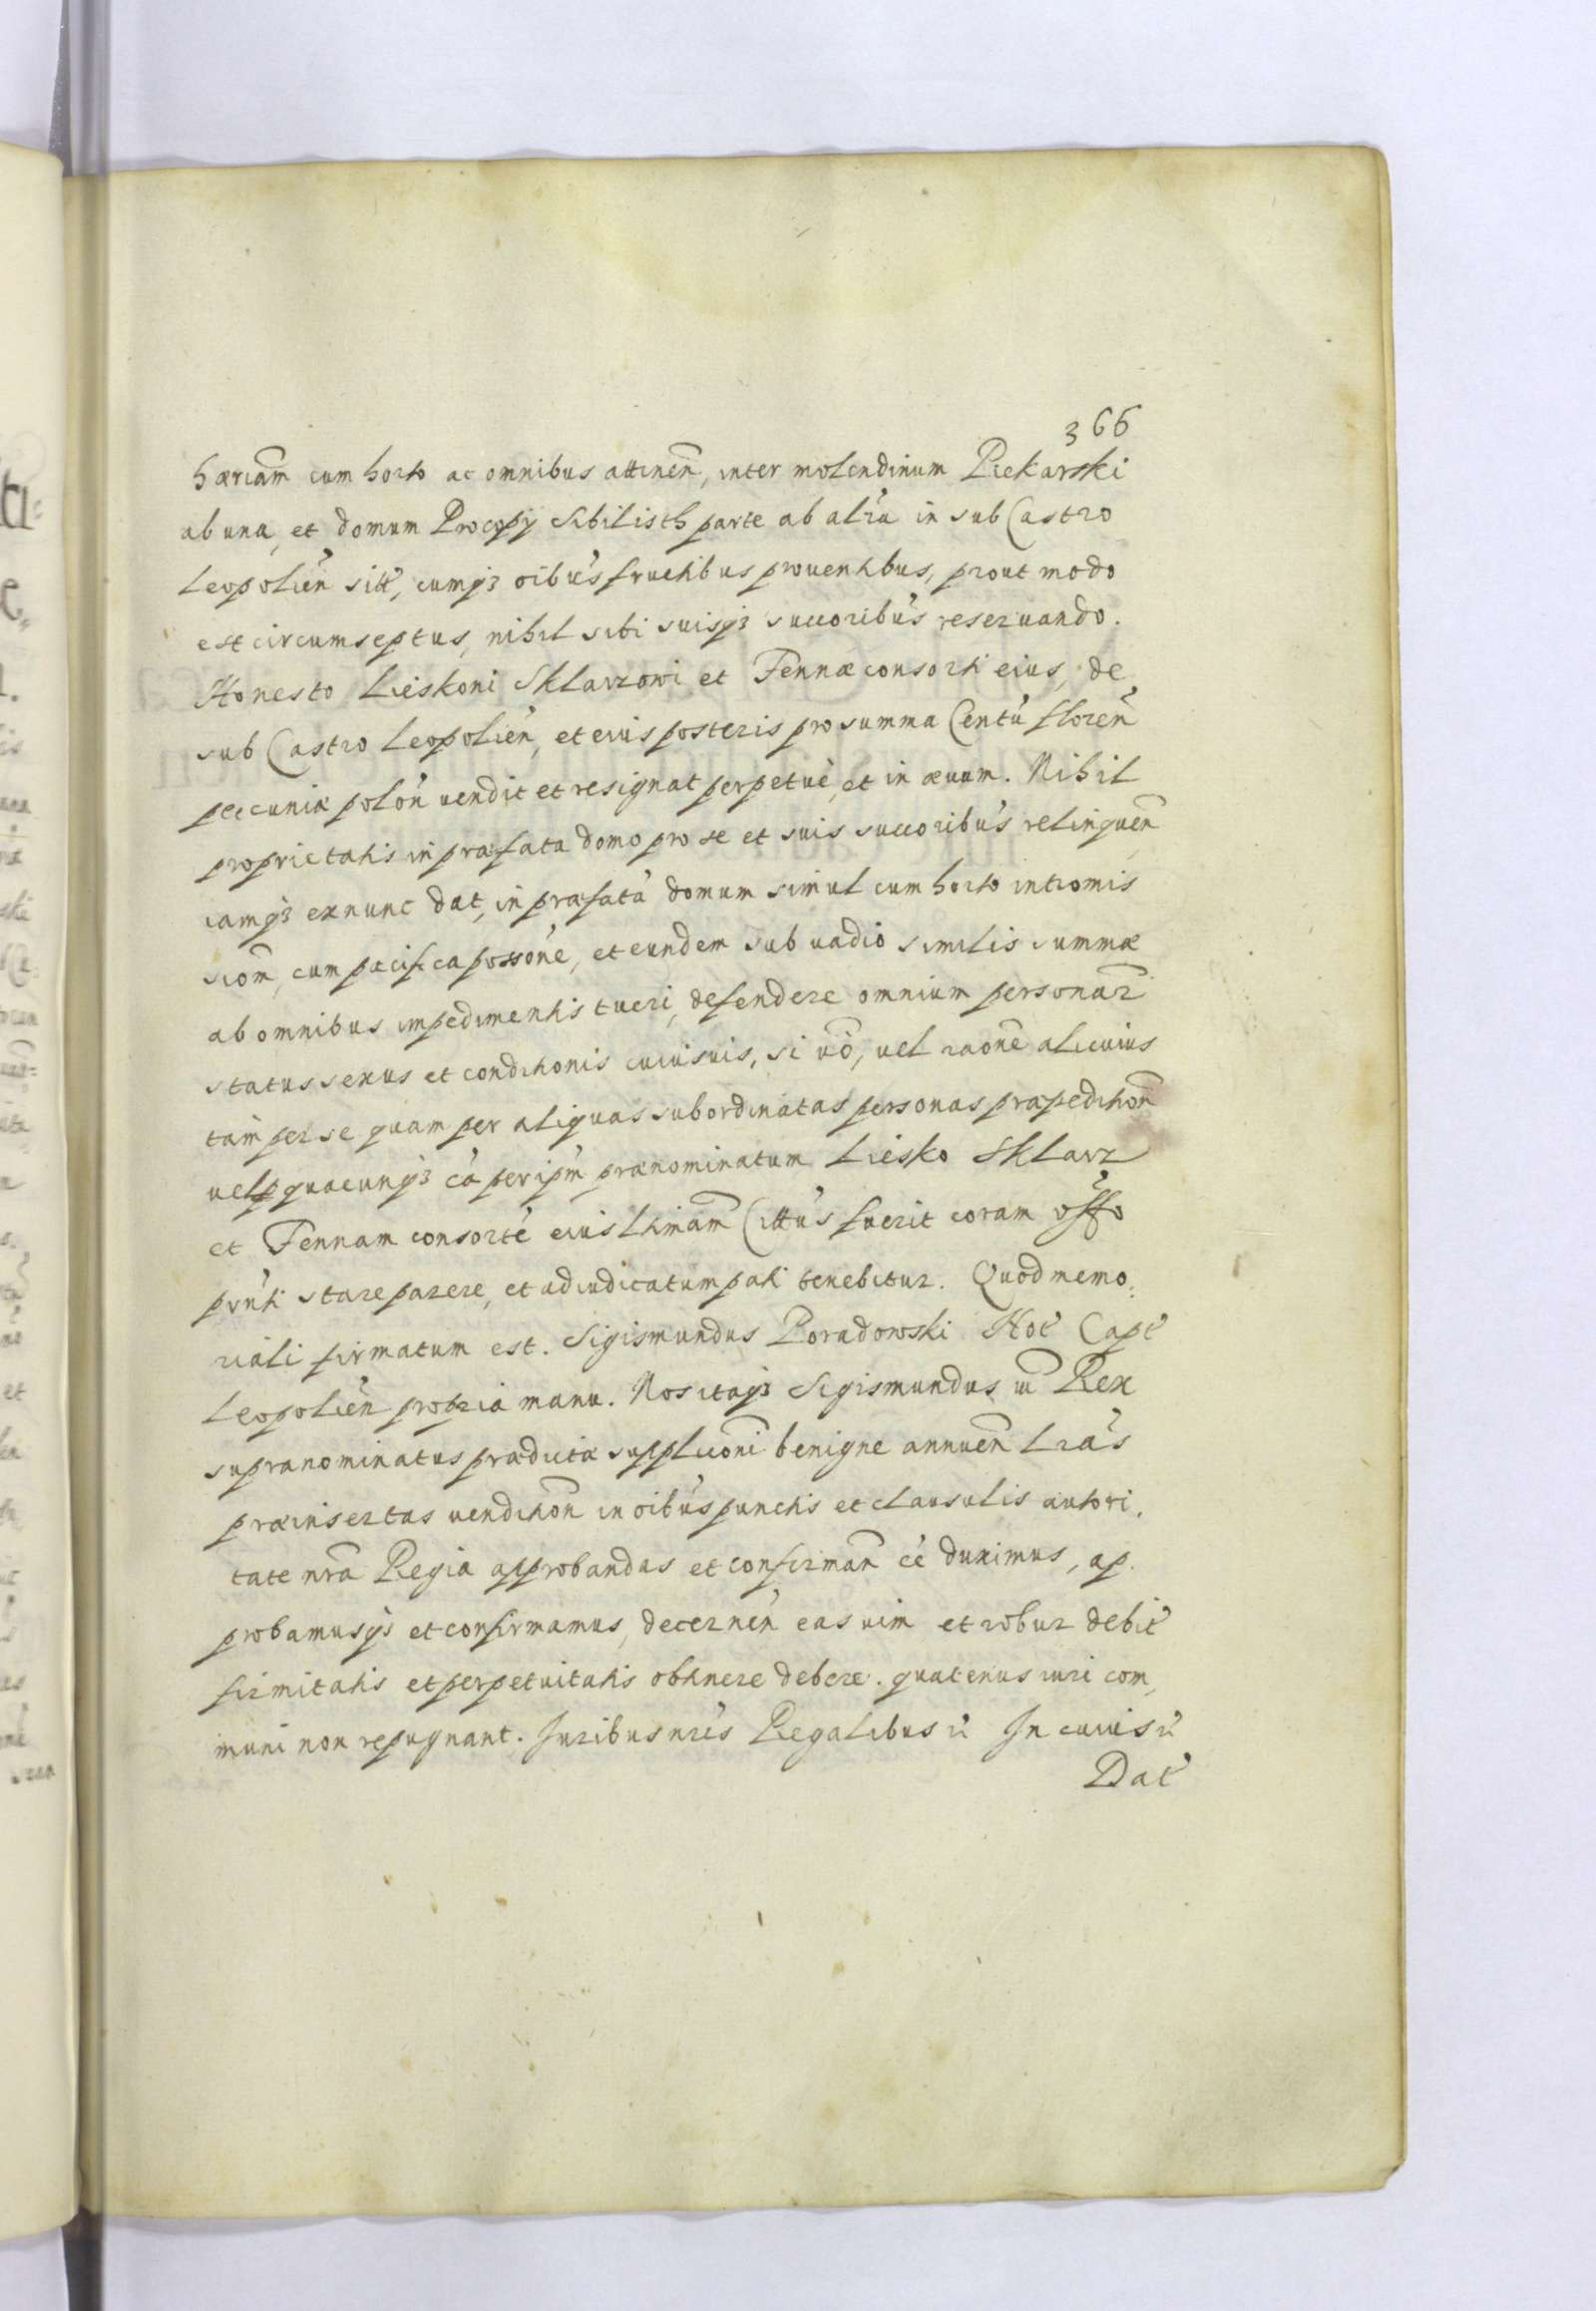 366
hæriam̃ cum horto ac omnibus attineñ, inter molendinum Piekarski
ab una, et domum Procopÿ Sibilisth parte ab alia in sub Castro
Leopolieñ sitt̃, cumqꝫ oibus̃ fructibus prouentibus, prout modo
est circumseptus, nihil sibi suisqꝫ succoribus̃ reseruando.
Honesto Lieskoni Sklarzowi et Fennæ consorti eius, de
sub Castro Leopolieñ, et eius posteris pro summa Centũ floreñ
peccuniæ poloñ uendit et resignat perpetuè, et in æuum. Nihil
proprietatis in præfata domo pro se et suis succoribus̃ relinqueñ
iamqꝫ exnunc dat, in præfatã domum simul cum horto intromis
siom̃, cum pacifica possoñe, et eundem sub uadio similis summæ
ab omnibus impedimentis tueri, defendere omnium personar̃
status sexus et conditionis cuiusuis, si uõ, uel raoñe alicuius
tam̃ per se quam per aliquas subordinatas personas præpeditioñ
uel ꝑ quacunqꝫ cã per ipm̃ prænominatum Liesko Sklarz
et Fennam consortẽ eius Ltimam̃ Cittus̃ fuerit coram offõ
pñti stare parere, et adiudicatum pati tenebitur. Quod memo:
riali firmatum est. Sigismundus Poradowski Not̃ Capt̃
Leopolieñ propria manu. Nos itaqꝫ Sigismundus iii Rex
supranominatus prædictæ supplicioñi benigne annueñ Lras̃
præinsertas uenditioñ in oibus̃ punctis et clausulis autori,
tate nrã Regia approbandas et confirmañ eẽ duximus, ap.
probamusqꝫ et confirmamus, decerneñ eas uim et robur debit̃
firmitatis et perpetuitatis obtinere debere. quatenus iuri com,
muni non repugnant. Juribus nris̃ Regalibus &c̃ In cuius &c̃
Dat̃